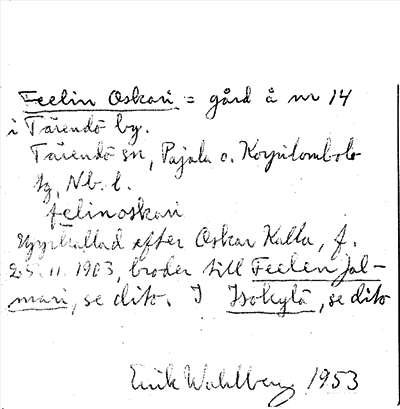 Feelin Oskari = gård å nr 14
i Tärendö by.
Tärendö sn, Pajala o. Korpilombolo
tg, Nb. l.
felinoskari
Uppkallad efter Oskar Kalla, f.
25. 11. 1903, broder till Feelen Jal-
mari, se dito. I Isokylä, se dito
Erik Wahlberg 1953